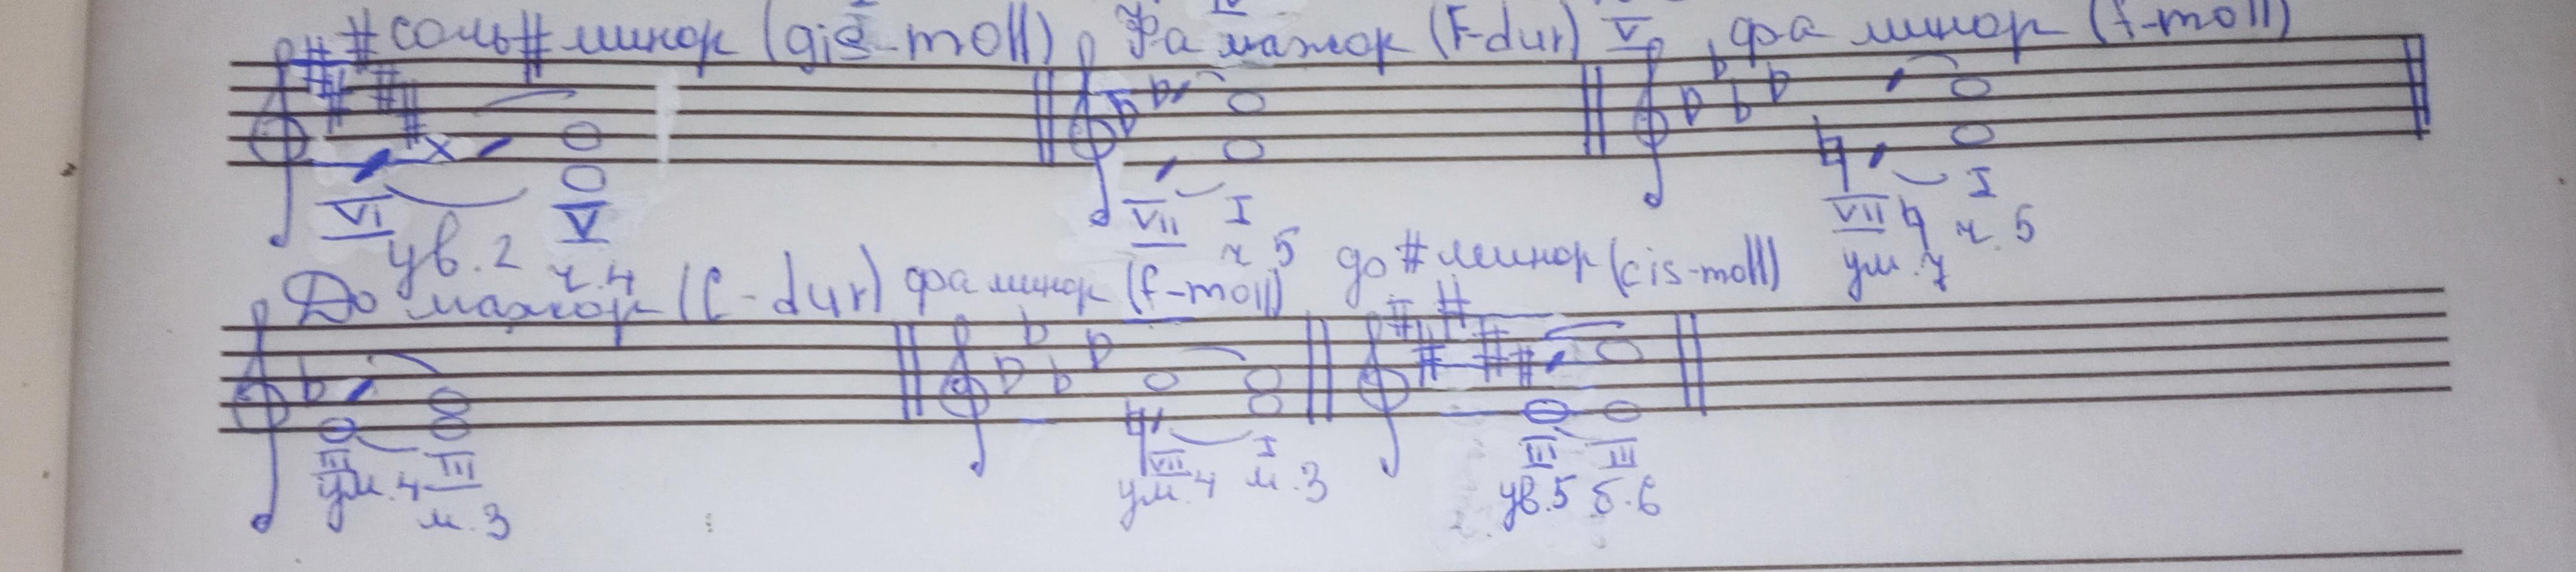 #соль# минор (gis-moll) Фа мажор (F-dur) V фа минор (f-moll)
VI V VII I VII♮ I
ув.2 ч.4 ч 5 ум.7 ч.5
До мажор (C-dur) фа минор (f-moll) до # минор (cis-moll)
III III VII I III III
ум.4 м.3 ум.4 м.3 ув.5 б.6